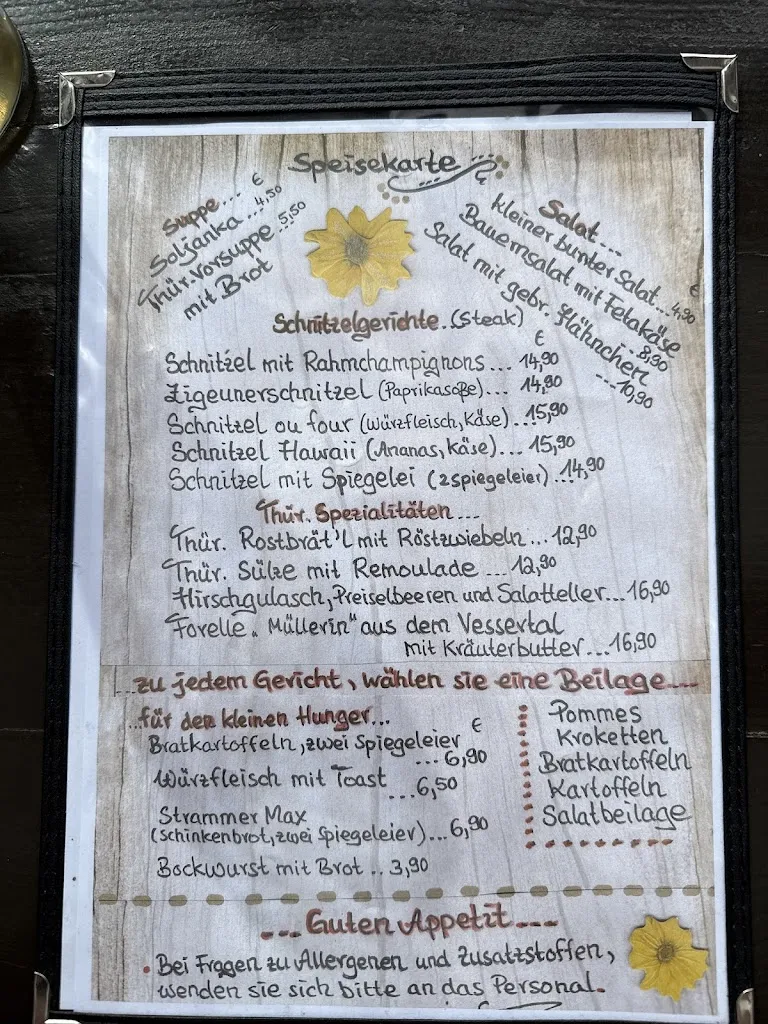 Speisekarte
Suppe... €
Soljanka ... 4,50
Thür. Vorsuppe ... 5,50
mit Brot
Salat... €
kleiner bunter Salat... 4,90
Bauernsalat mit Fetakäse ... 8,90
Salat mit gebr. Hähnchen ... 10,90
Schnitzelgerichte. (Steak)
€
Schnitzel mit Rahmchampignons... 14,90
Zigeunerschnitzel (Paprikasoße)... 14,90
Schnitzel ou four (Würzfleisch, Käse)... 15,90
Schnitzel Hawaii (Ananas, Käse)... 15,90
Schnitzel mit Spiegelei (2 Spiegeleier)... 14,90
Thür. Spezialitäten...
Thür. Rostbrät'l mit Röstzwiebeln... 12,90
Thür. Sülze mit Remoulade ... 12,90
Hirschgulasch, Preiselbeeren und Salatteller... 16,90
Forelle „Müllerin" aus dem Vessertal
mit Kräuterbutter... 16,90
...zu jedem Gericht, wählen sie eine Beilage...
...für den kleinen Hunger...
€
Bratkartoffeln, zwei Spiegeleier
... 6,90
Würzfleisch mit Toast ... 6,50
Strammer Max
(Schinkenbrot, zwei Spiegeleier)... 6,90
Bockwurst mit Brot .. 3,90
Pommes
Kroketten
Bratkartoffeln
Kartoffeln
Salatbeilage
... Guten Appetit ...
• Bei Fragen zu Allergenen und Zusatzstoffen,
wenden sie sich bitte an das Personal.